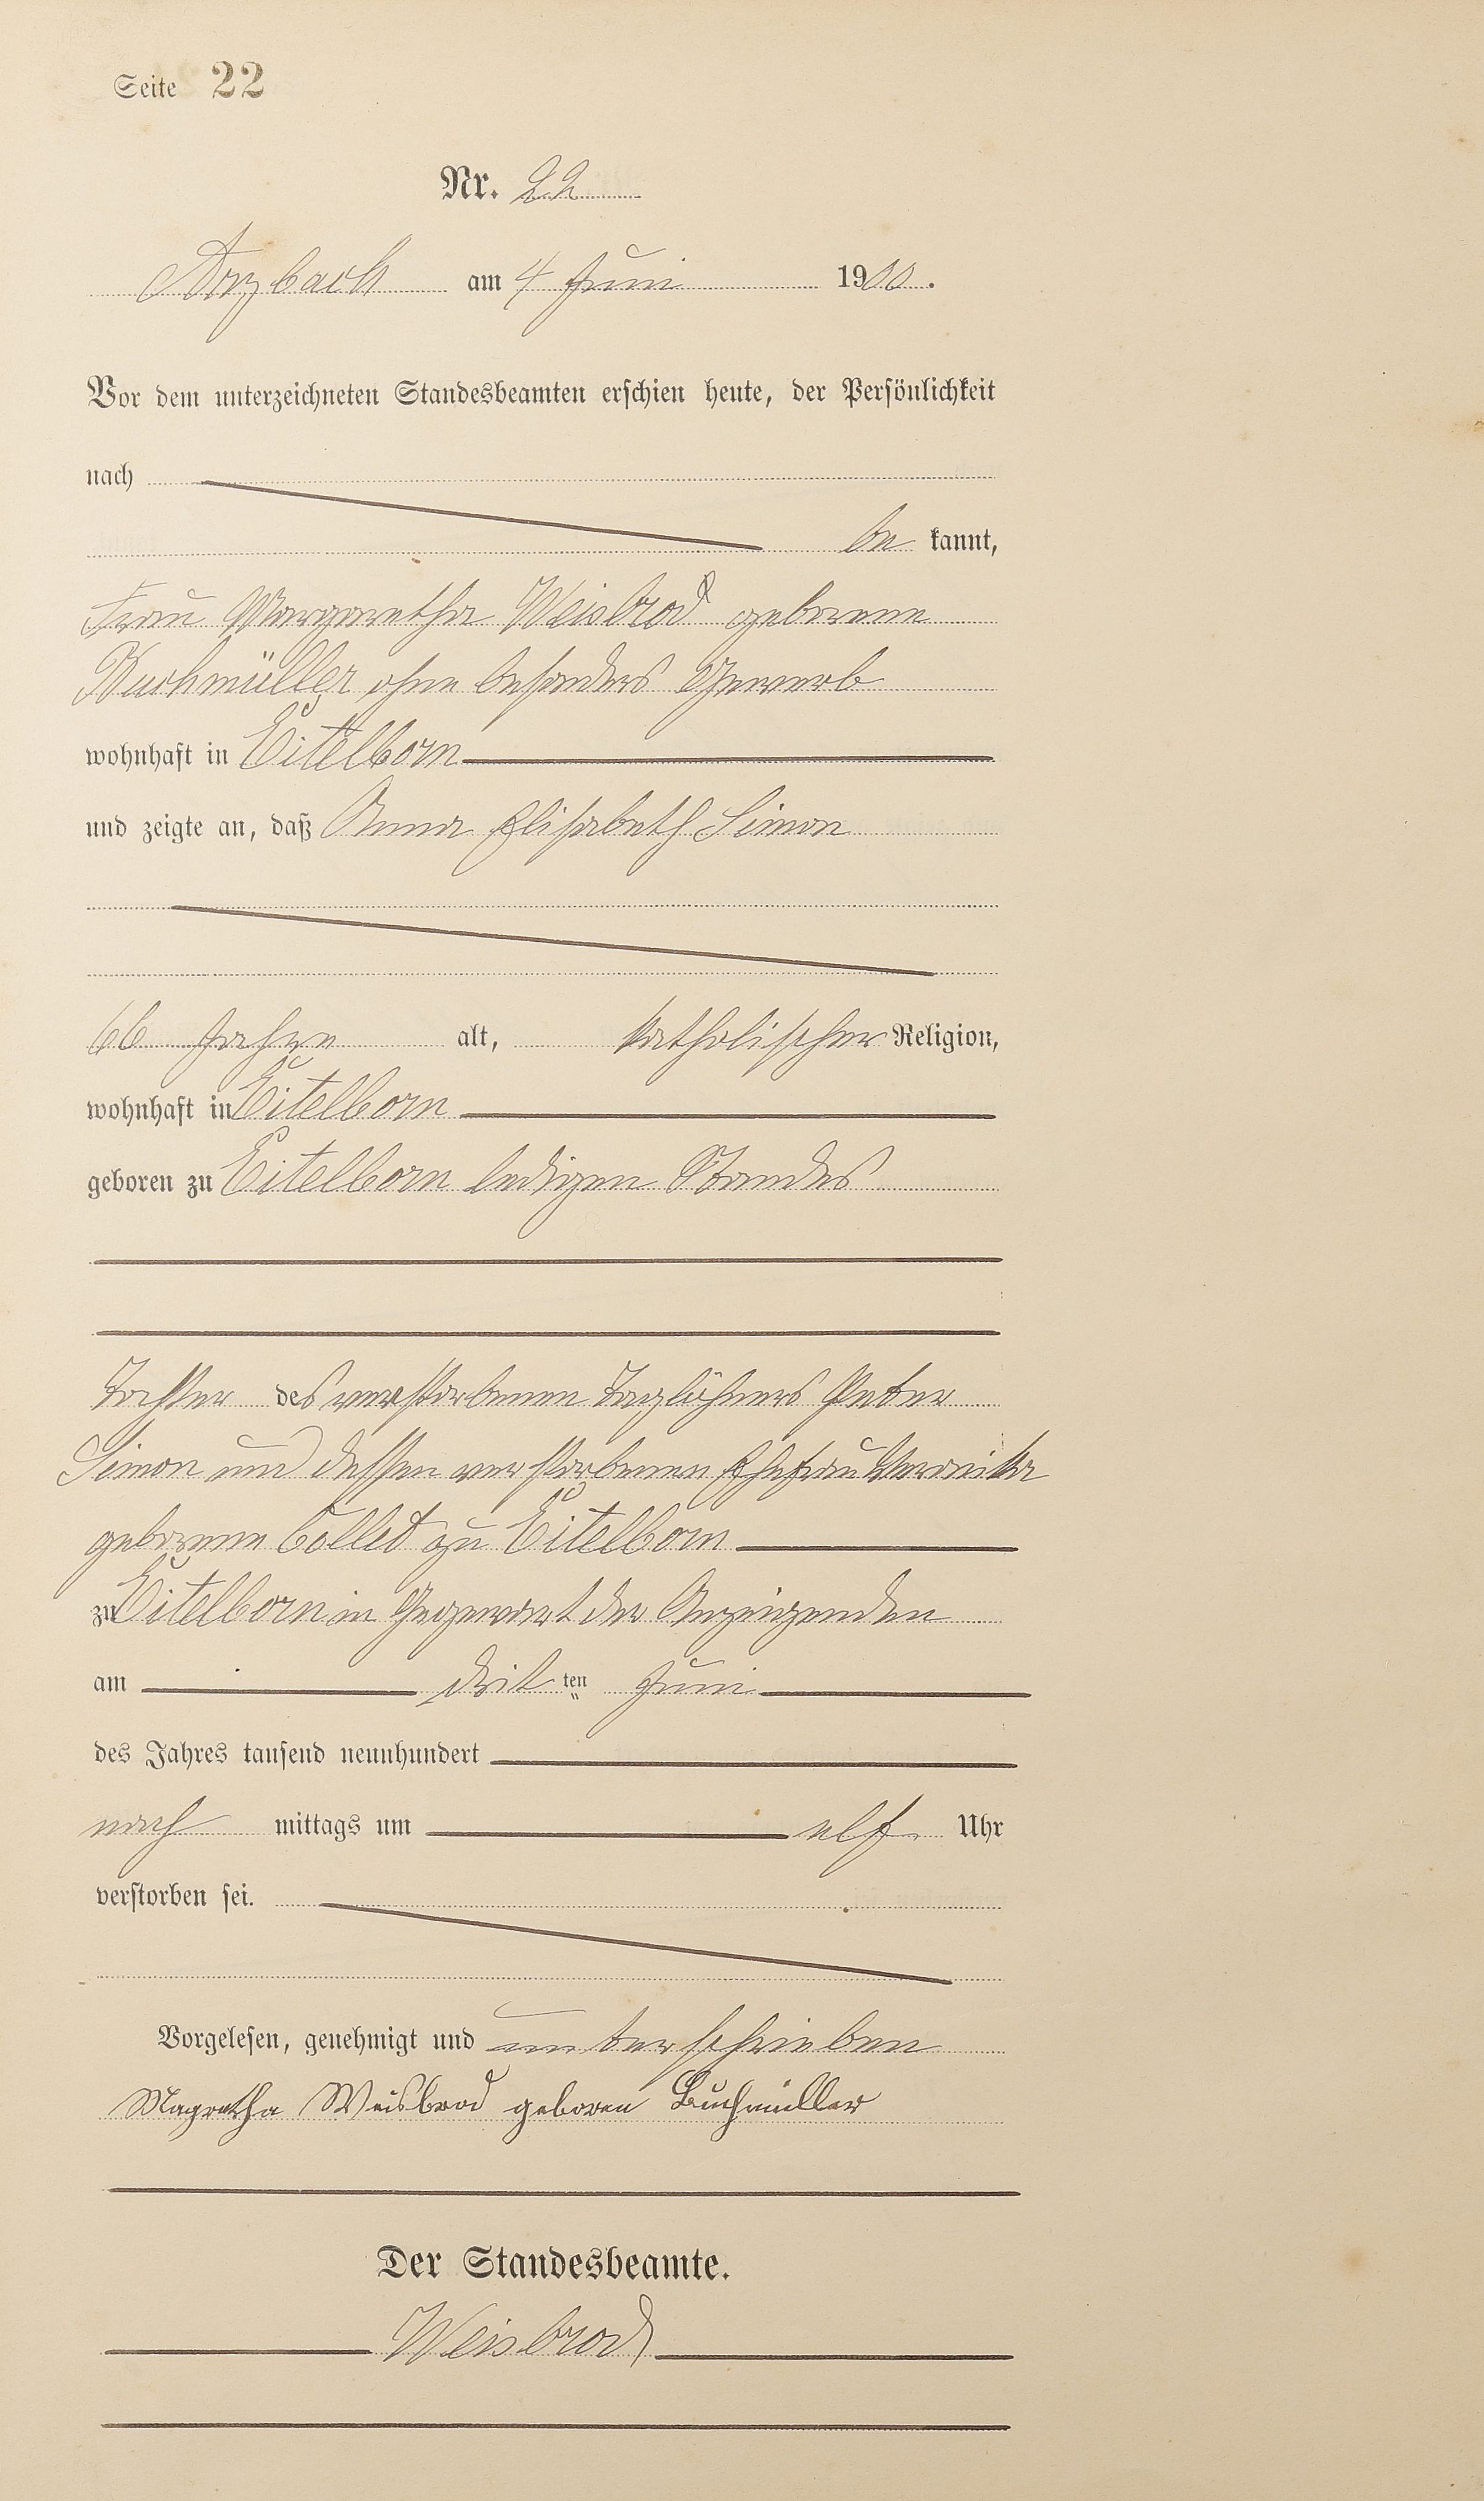 Seite 22
Nr. 22
Arzbach am 4 Juni 1900.
Vor dem unterzeichneten Standesbeamten erschien heute, der Persönlichkeit
nach
be kannt,
Frau Margaretha Weisbrod geborene
Buchmüller ohne besonders Gewerb
wohnhaft in Eitelborn
und zeigte an, daß Anna Elisabeth Simon
66 Jahre alt, katholischer Religion,
wohnhaft in Eitelborn
geboren zu Eitelborn ledigen Standes
Tochter des verstorbenen Taglöhners Peter
Simon und dessen verstorbenen Ehefrau Veronika
geborene Collet zu Eitelborn
zu Eitelborn in Gegenwart der Anzeigenden
am drit ten Juni
des Jahres tausend neunhundert
nach mittags um elf Uhr
verstorben sei.
Vorgelesen, genehmigt und unterschrieben
Magretha Weisbrod geboren Buchmüller
Der Standesbeamte.
Weisbrod